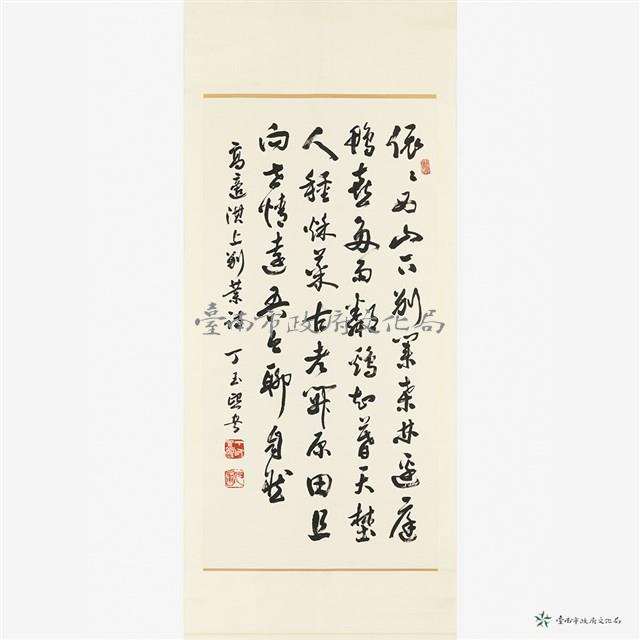 依々西山下別業桑林邊庭
鴨喜多雨鄰鷄知暮天埜
人種秋菜古老開原田且
向世情遠吾今聊自然
高適淇上別業詩 丁玉熙書
臺南市政府文化局
臺南市政府文化局